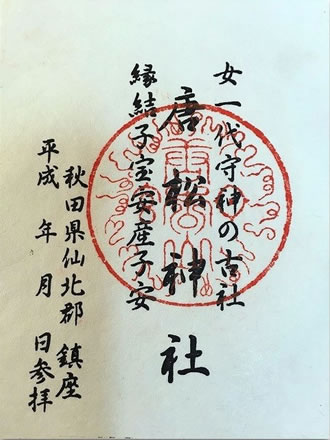 女一代守神の古社
唐松神社
縁結子宝安産子安
秋田県仙北郡 鎮座
平成 年 月 日参拝